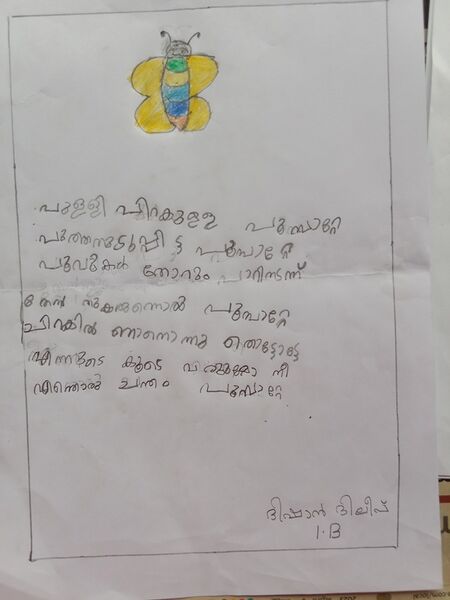 പുള്ളി ചിറകുള്ള പൂമ്പാറ്റേ
പുത്തനുടുപ്പിട്ട പൂമ്പാറ്റേ
പൂവുകൾ തോറും പാറിനടന്ന്
തേൻ നുകരുന്നൊൽ പൂമ്പാറ്റേ
ചിറകിൽ ഞാനൊന്നു തൊട്ടോട്ടേ
എന്നുടെ കൂടെ വരുമോ നീ
എന്തൊൽ ചന്തം പൂമ്പാറ്റേ
ദിഷാൻ ദിലീപ്
1.B